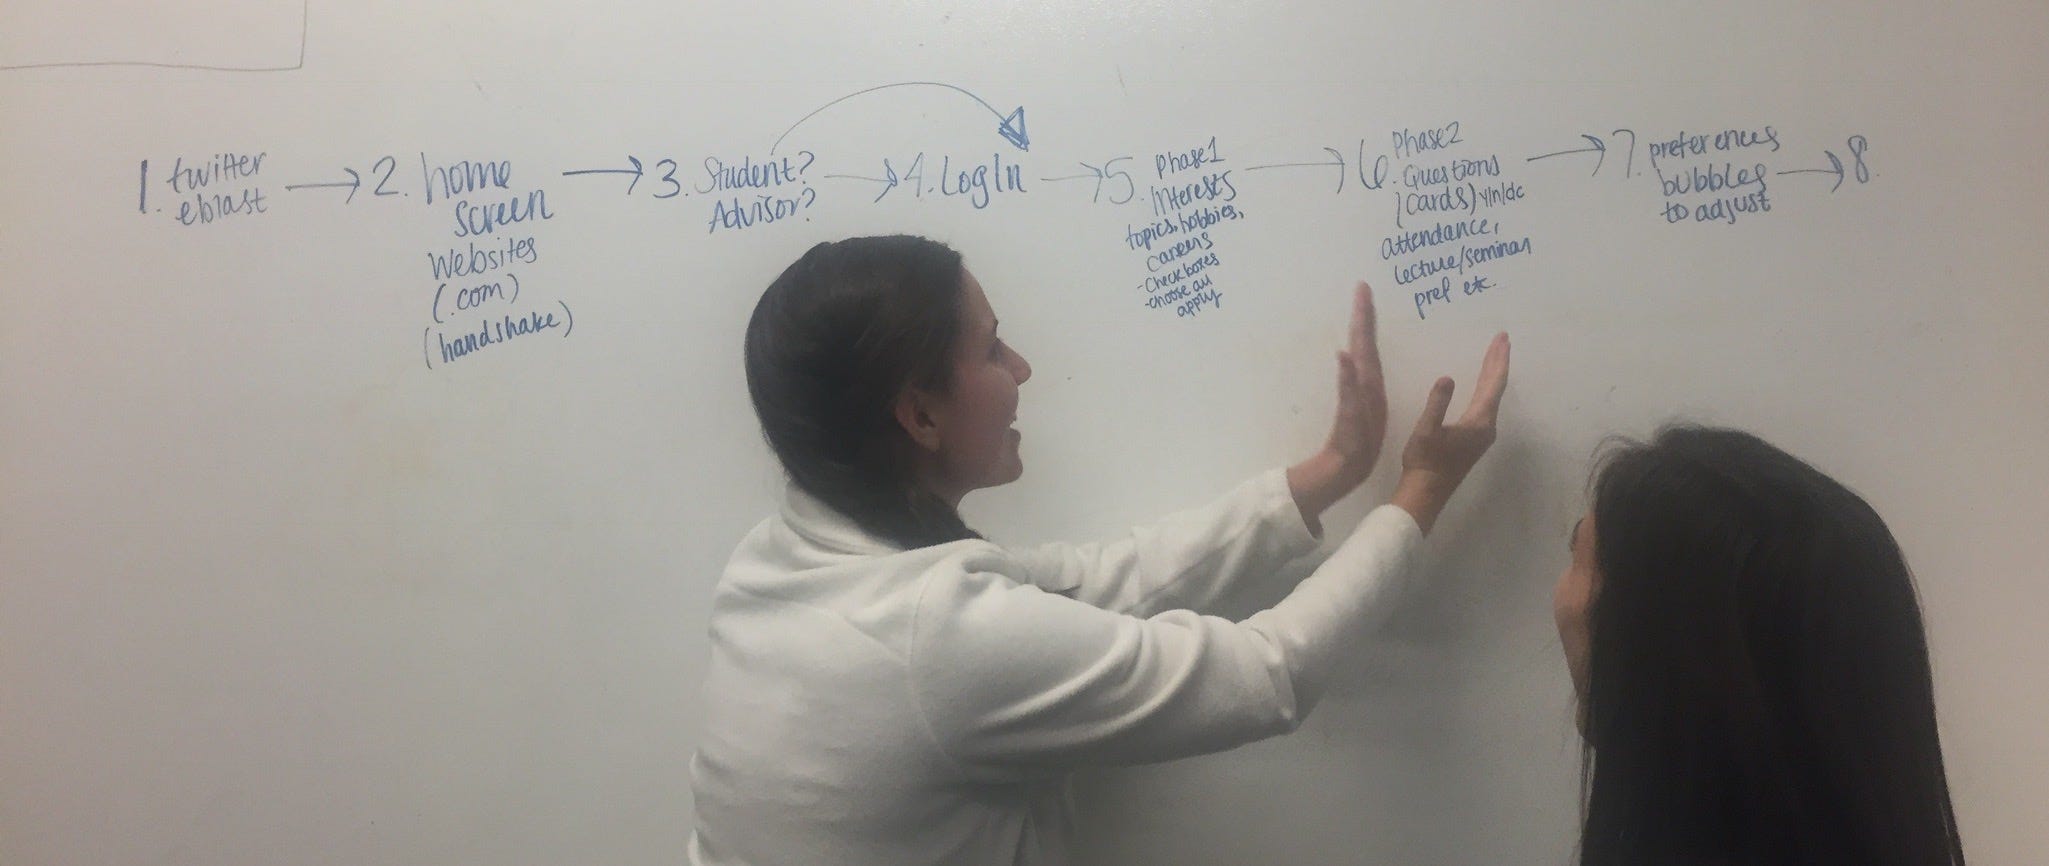 1. twitter
eblast
2. home
screen
Websites
(.com)
(handshake)
3. Student?
Advisor?
4. LogIn
5. phase1
Interests
topics, hobbies,
careers
- checkboxes
- choose all
apply
6. Phase2
Questions
(cards) y/n/dc
attendance,
lecture/seminar
pref etc.
7. preferences
bubbles
to adjust
8.